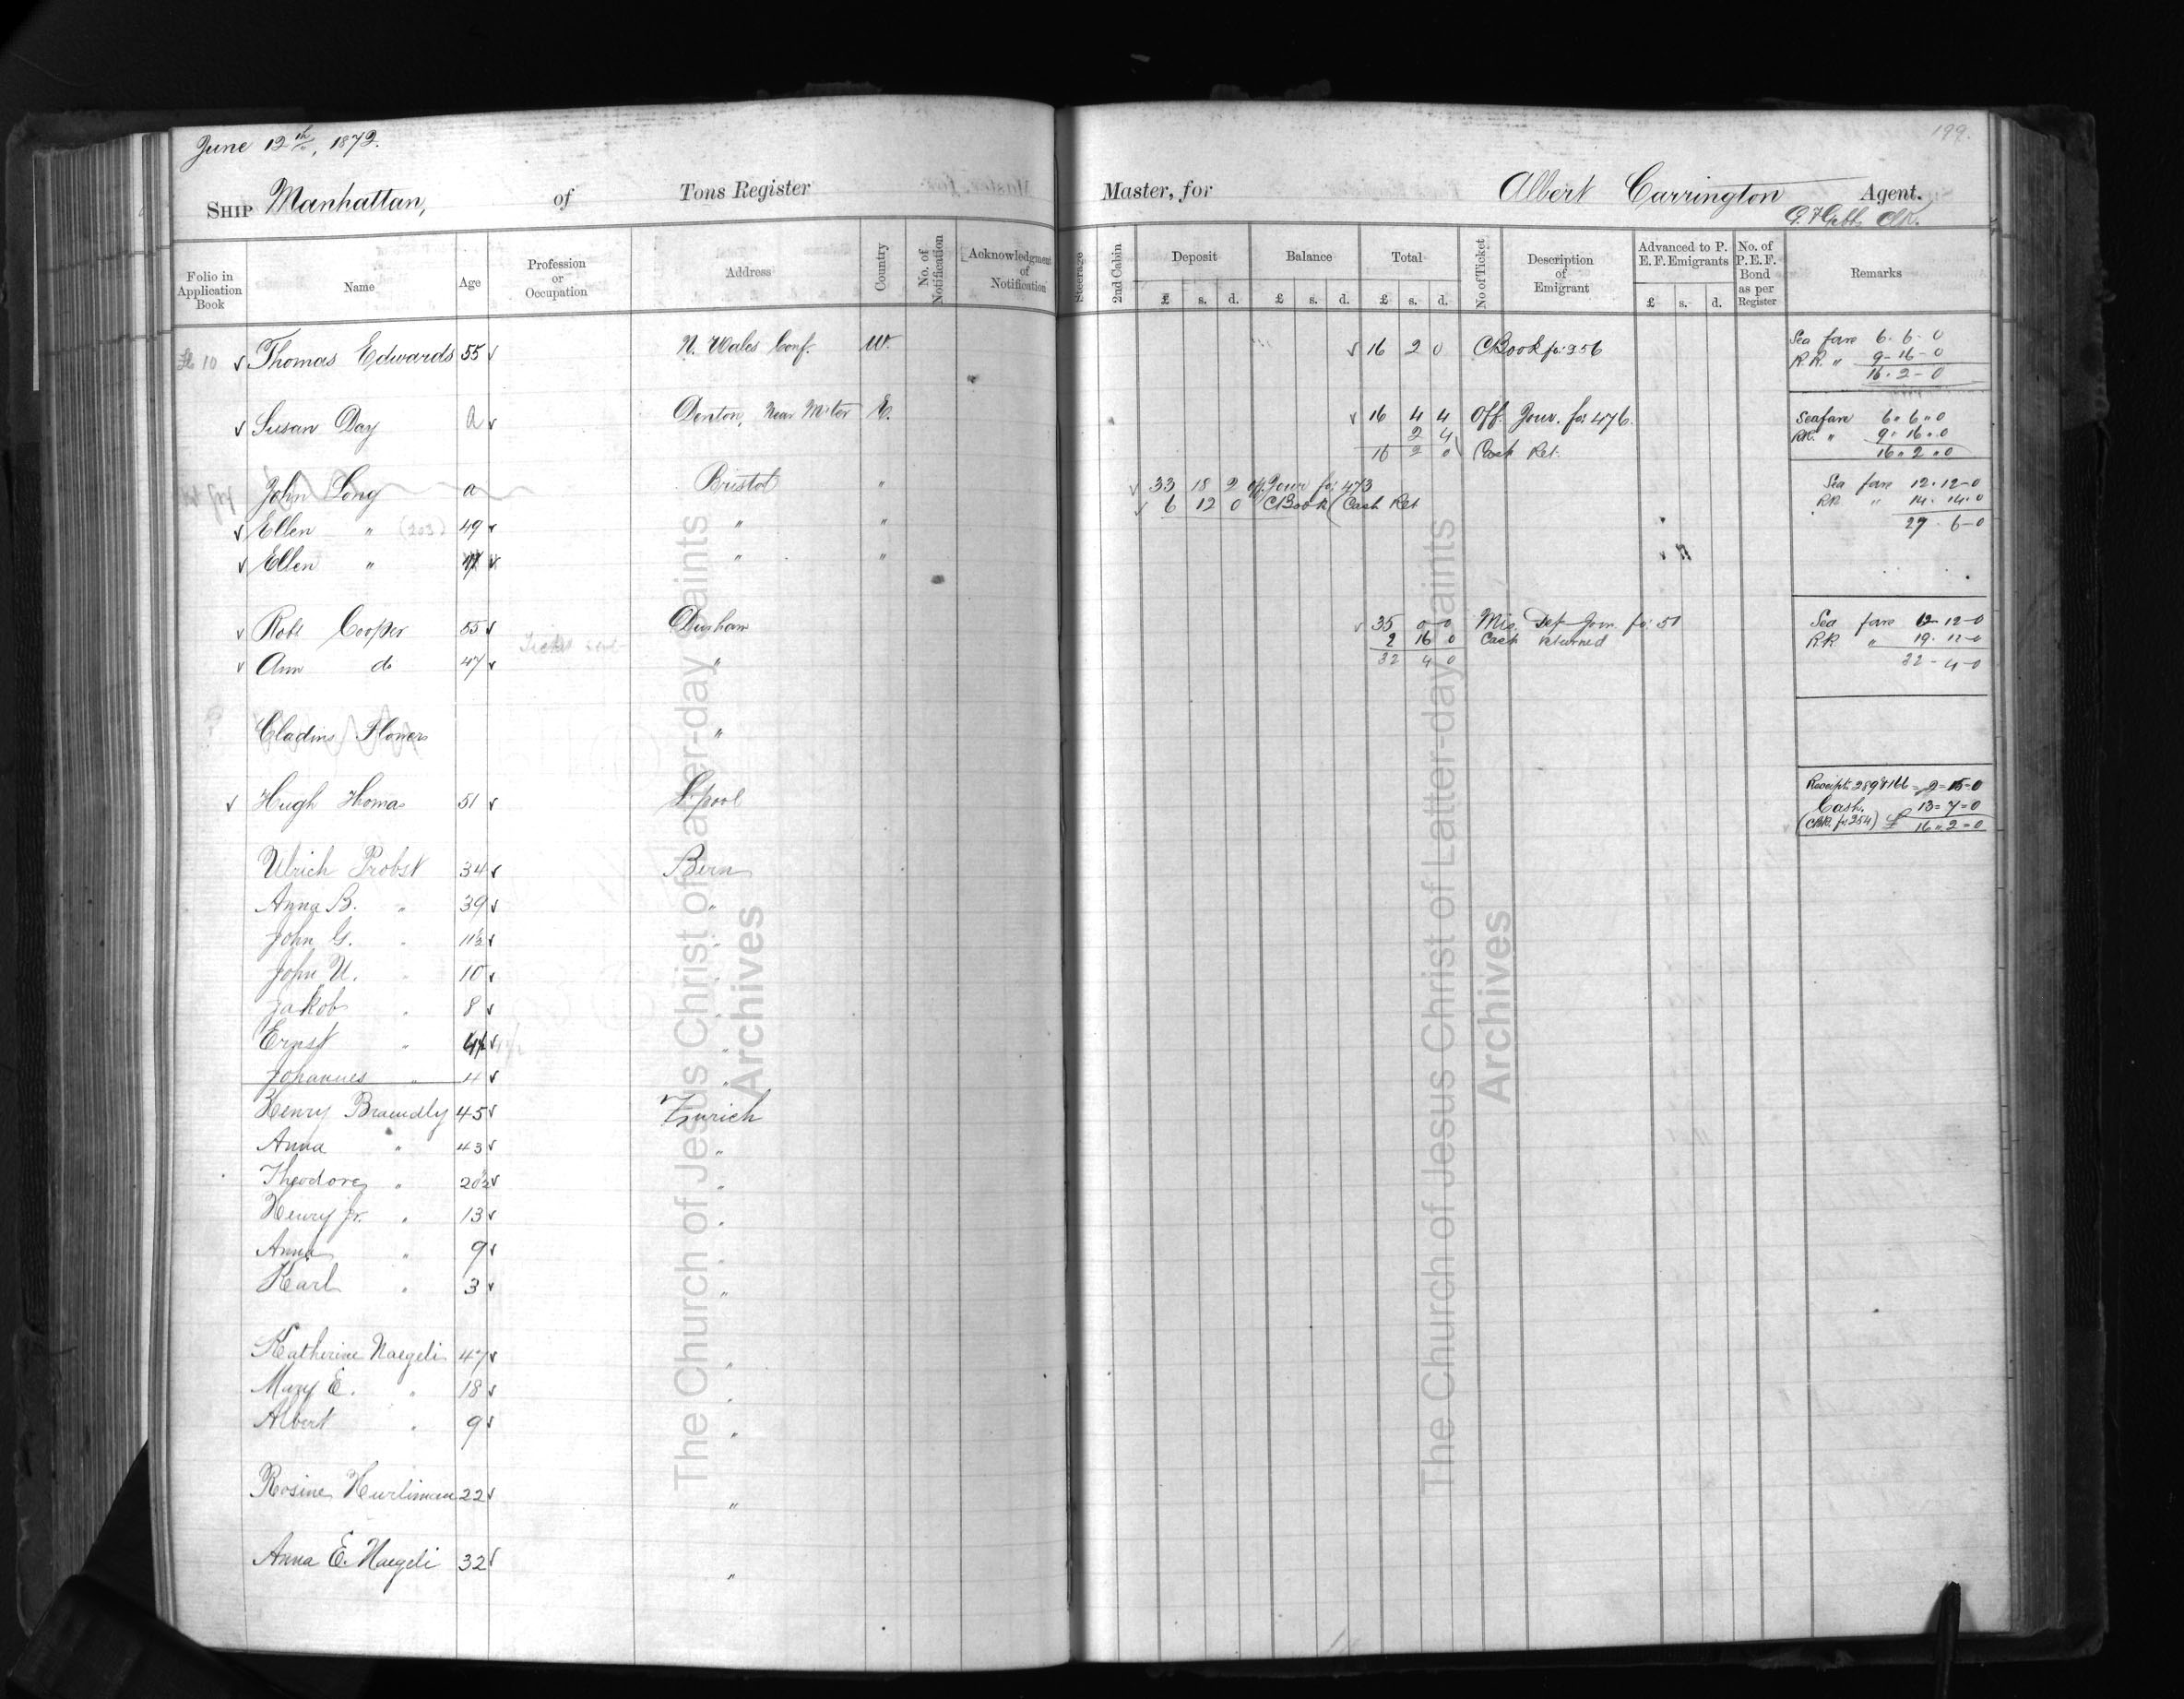 June 12th, 1872.
199.
SHIP Manhattan, of Tons Register Master, for Albert Carrington Agent.
Folio in Application Book Name Age Profession or Occupation Address Country No. of Notification Acknowledgment of Notification Steerage 2nd Cabin Deposit Balance Total No of Ticket Description of Emigrant Advanced to P. E. F. Emigrants No. of P.E.F. Bond as per Register Remarks
£ s. d. £ s. d. £ s. d. £ s. d.
Thomas Edwards 55 N. Wales Conf. W. 16 2 0 CBook fo: 256 Sea fare 6-6-0
R.R. " 9-16-0
16-2-0
Susan Day a Denton, Near M'ter E. 16 4 4 Off. Jour. fo: 476. Seafare 6"6"0
2 4 RR. " 9"16"0
16 2 0 Cash Ret. 16"2"0
John Long a Bristol " 33 18 2 Off. Jour fo: 473 Sea fare 12-12-0
6 12 0 CBook (Cash Ret RR " 14-14-0
Ellen " (203) 49 " " 27-6-0
Ellen " " "
Robt Cooper 55 Durham 35 0 0 Mis. Def Jour. fo: 51 Sea fare 12-12-0
2 16 0 Cash returned RR " 19-12-0
Ann do 47 " 32 4 0 32-4-0
Cladins Flowers "
Hugh Thomas 51 L'pool Receipts 289 & 166 = 2=15-0
Cash. 13=7=0
(CBk. fo: 254) £ 16"2=0
Ulrich Probst 34 Bern
Anna B. " 39 "
John G. " 11½ "
John U. " 10 "
Jakob " 8 "
Ernst " "
Johannes " 4 "
Henry Braendly 45 Zurich
Anna " 43 "
Theodore " 20½ "
Henry Jr. " 13 "
Anna " 9 "
Karl " 3 "
Katherine Naegeli 47 "
Mary E. " 18 "
Albert " 9 "
Rosine Hurliman 22 "
Anna E. Naegeli 32 "
The Church of Jesus Christ of Latter-day Saints
Archives
The Church of Jesus Christ of Latter-day Saints
Archives